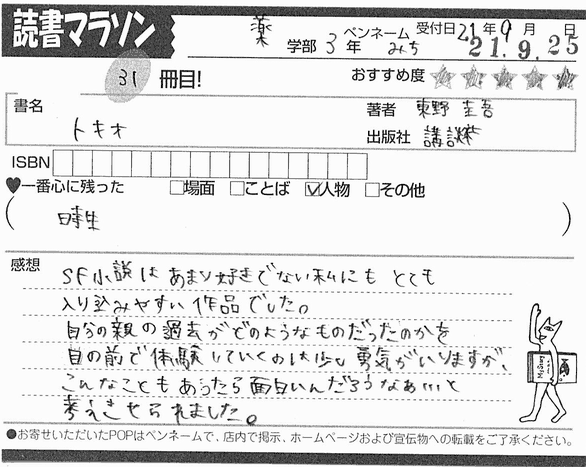 読書マラソン
薬 学部 3 年 ペンネーム みち 受付日 21 年 9 月 日
21.9.25
31 冊目!
おすすめ度 ☆☆☆☆☆
書名 トキオ
著者 東野 圭吾
出版社 講談社
ISBN
♥一番心に残った □場面 □ことば ☑人物 □その他
( 時生 )
感想
SF小説は あまり好きでない私にも とても
入り込みやすい 作品でした。
自分の親の過去がどのようなものだったのかを
目の前で体験していくのは少し勇気がいりますが、
こんなこともあったら面白いんだろうなぁ…と
考えさせられました。
●お寄せいただいたPOPはペンネームで、店内で掲示、ホームページおよび宣伝物への転載をご了承ください。